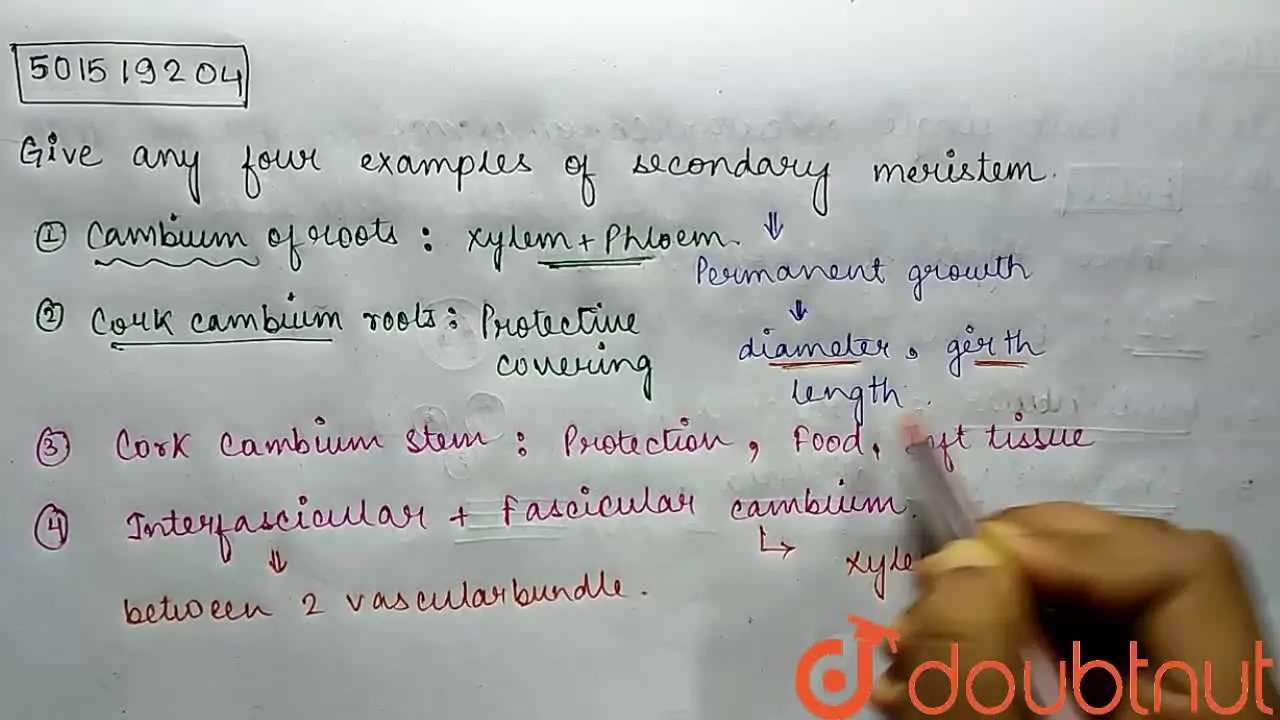 501519204
Give any four examples of secondary meristem.
① Cambium of roots : xylem + Phloem. ⇓
Permanent growth
② Cork cambium roots : Protective
covering
↓
diameter, girth
length.
③ Cork Cambium stem : Protection, Food, tissue
④ Interfascicular + fascicular cambium.
⇓
between 2 vascularbundle.
doubtnut